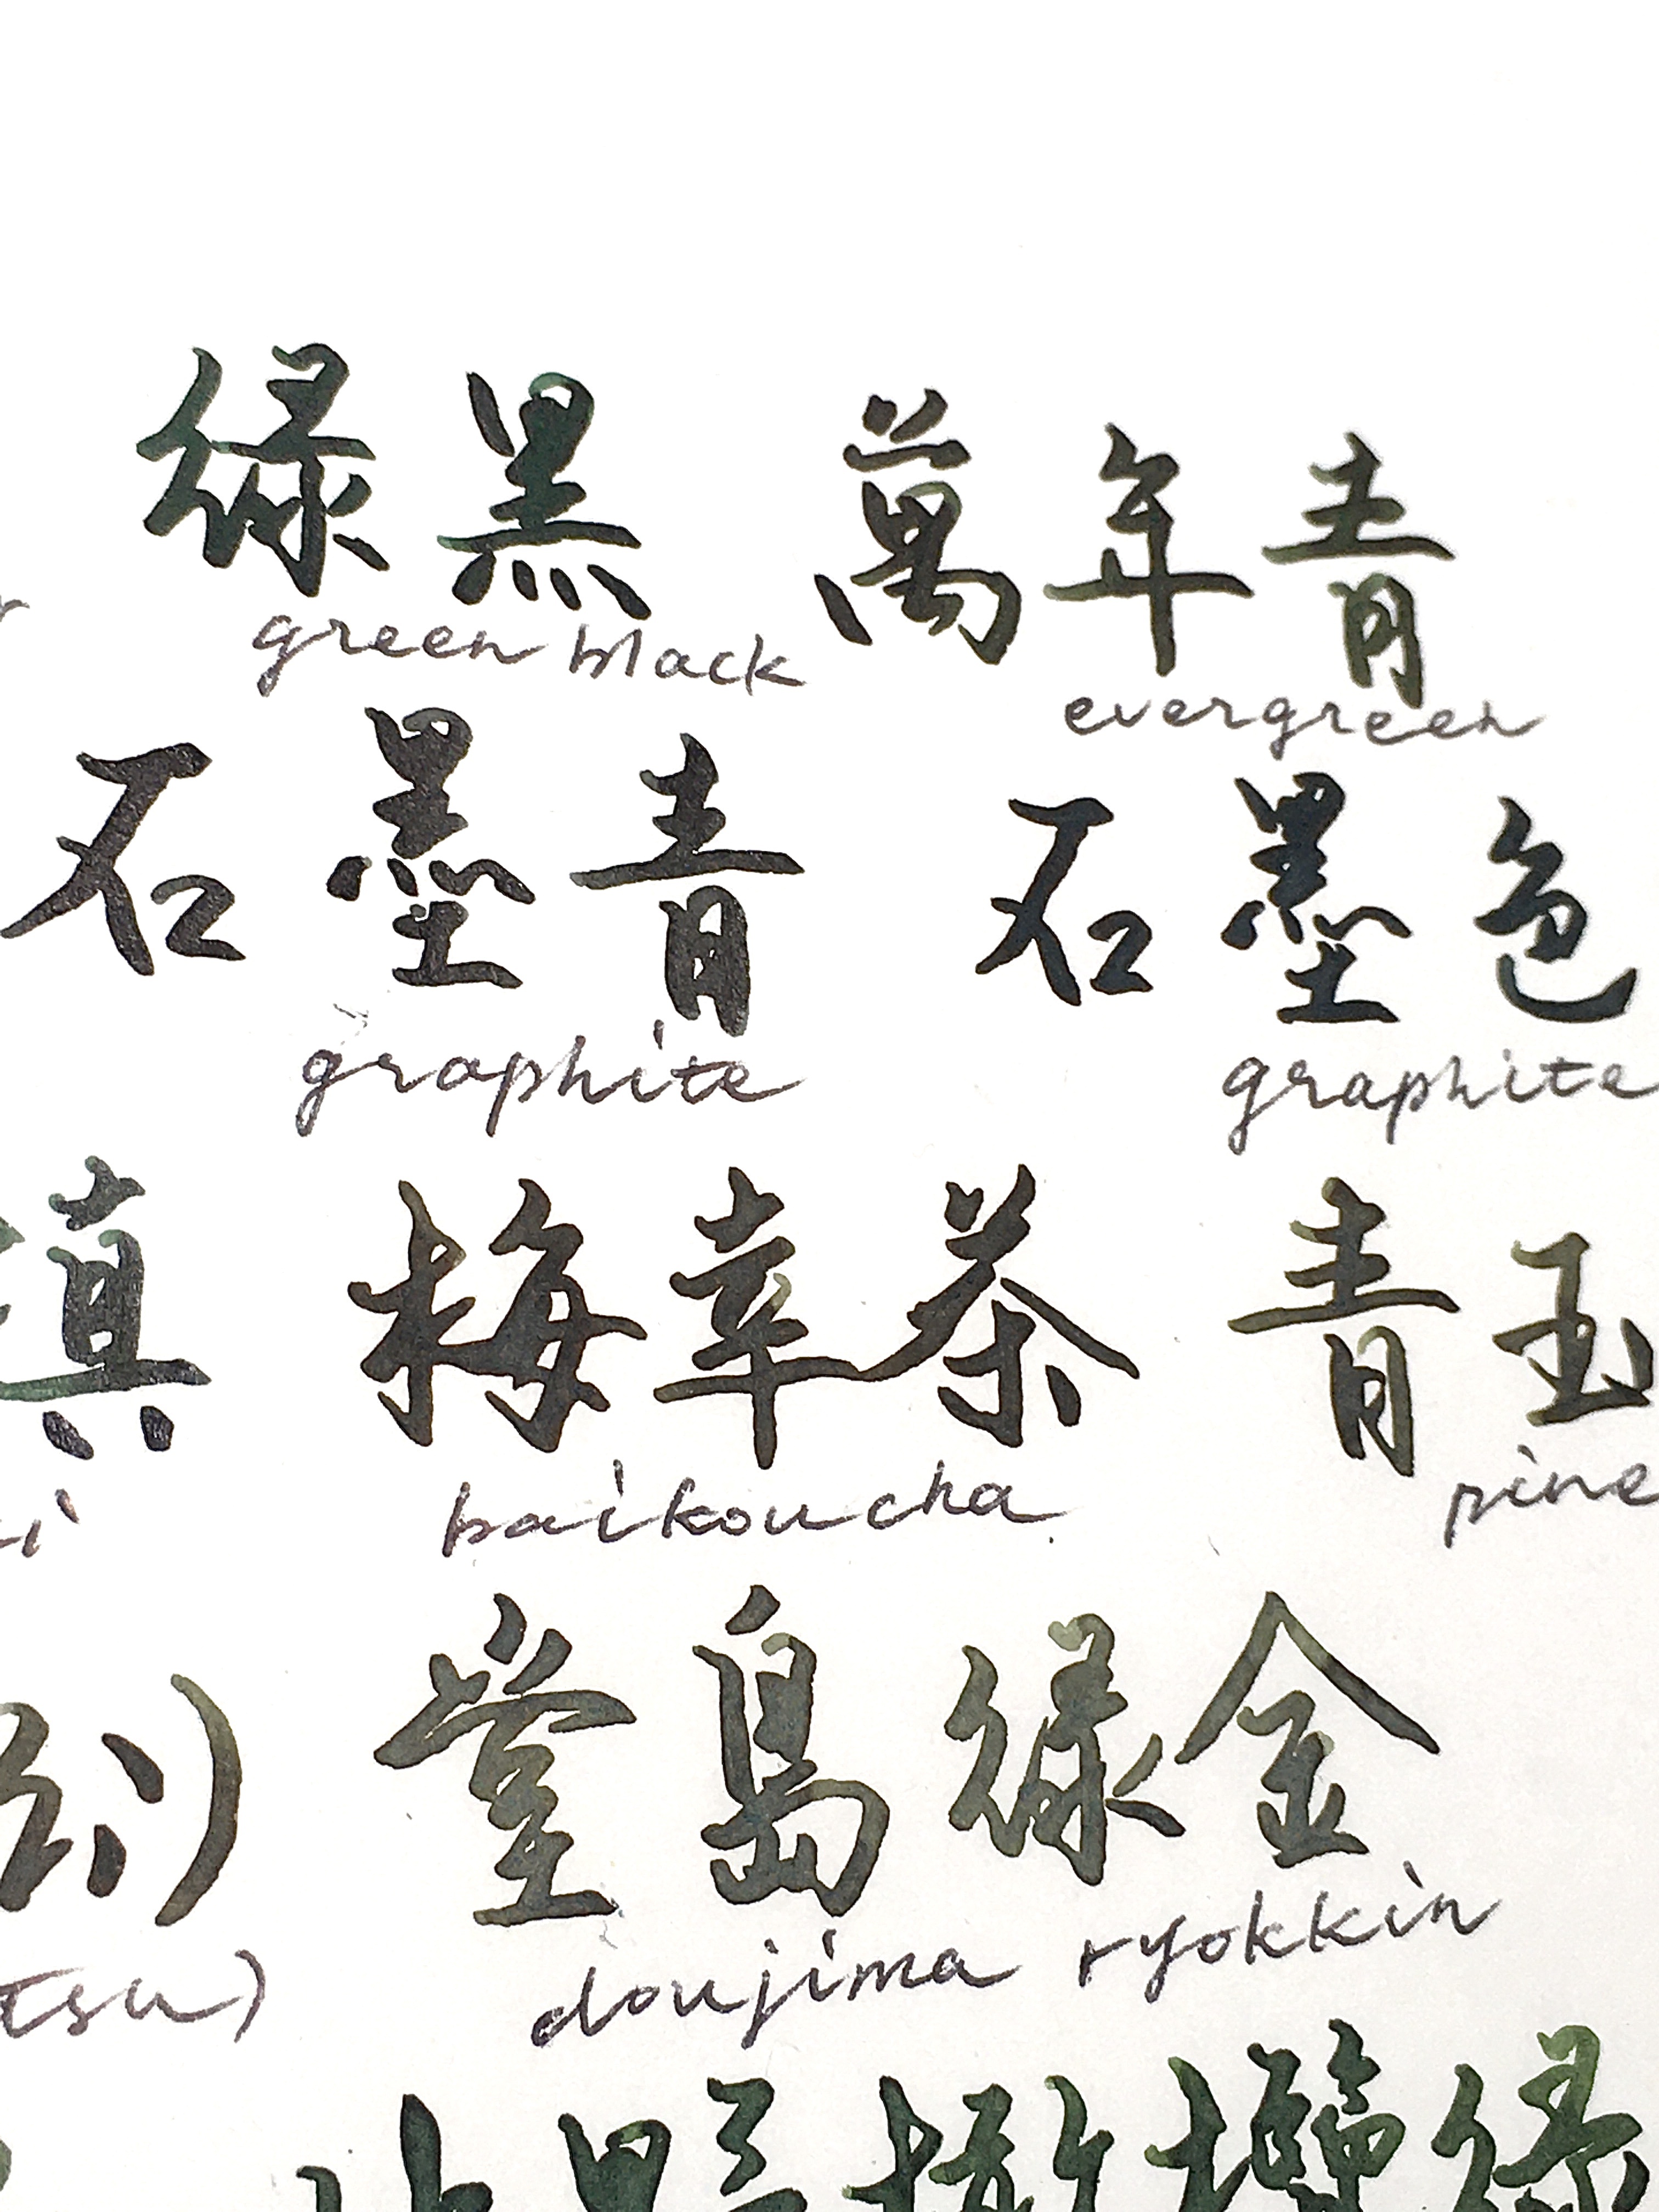 綠黑 萬年青
green black evergreen
石墨青 石墨色
graphite graphite
梅幸茶 青玉
baikoucha pine
堂島綠金
tsu) doujima ryokkin
橄欖綠